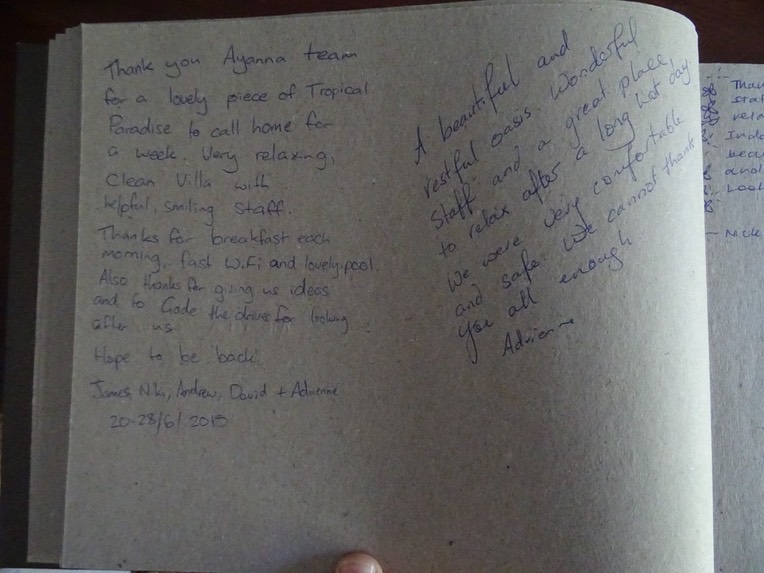 Thank you Ayanna team
for a lovely piece of Tropical
Paradise to call home for
a week. Very relaxing,
Clean Villa with
helpful, smiling staff.
Thanks for breakfast each
morning, fast WiFi and lovely pool.
Also thanks for giving us ideas
and to Gode the driver for looking
after us
Hope to be back.
James, Niki, Andrew, David + Adrienne
20-28/6/2015
A beautiful and
restful oasis. Wonderful
Staff and a great place
to relax after a long hot day.
We were very comfortable
and safe. We cannot thank
you all enough
Adrienne
Than
staf
rela
Indo
beau
and
Look